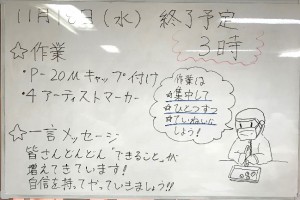 11月12日(水) 終了予定
3時
☆作業
・P-20Mキャップ付け
・4アーティストマーカー
作業は
☆集中して
☆ひとつずつ
☆ていねいに
しよう!
☆一言メッセージ
皆さんどんどん"できること"が
増えてきています!
自信を持ってやっていきましょう!!